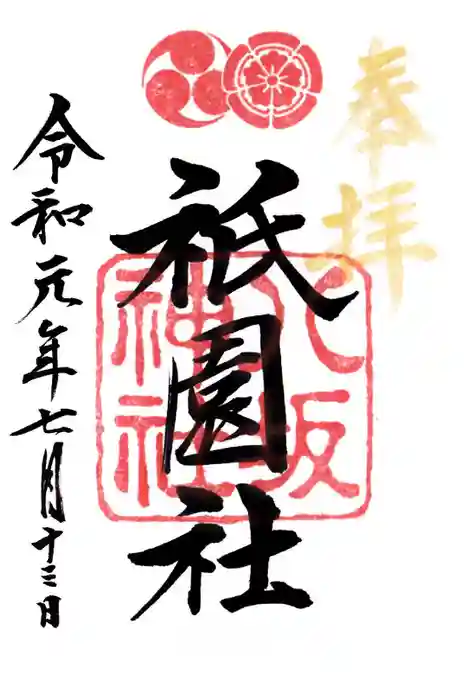 奉拝
八坂
神社
祇園社
令和元年七月十三日